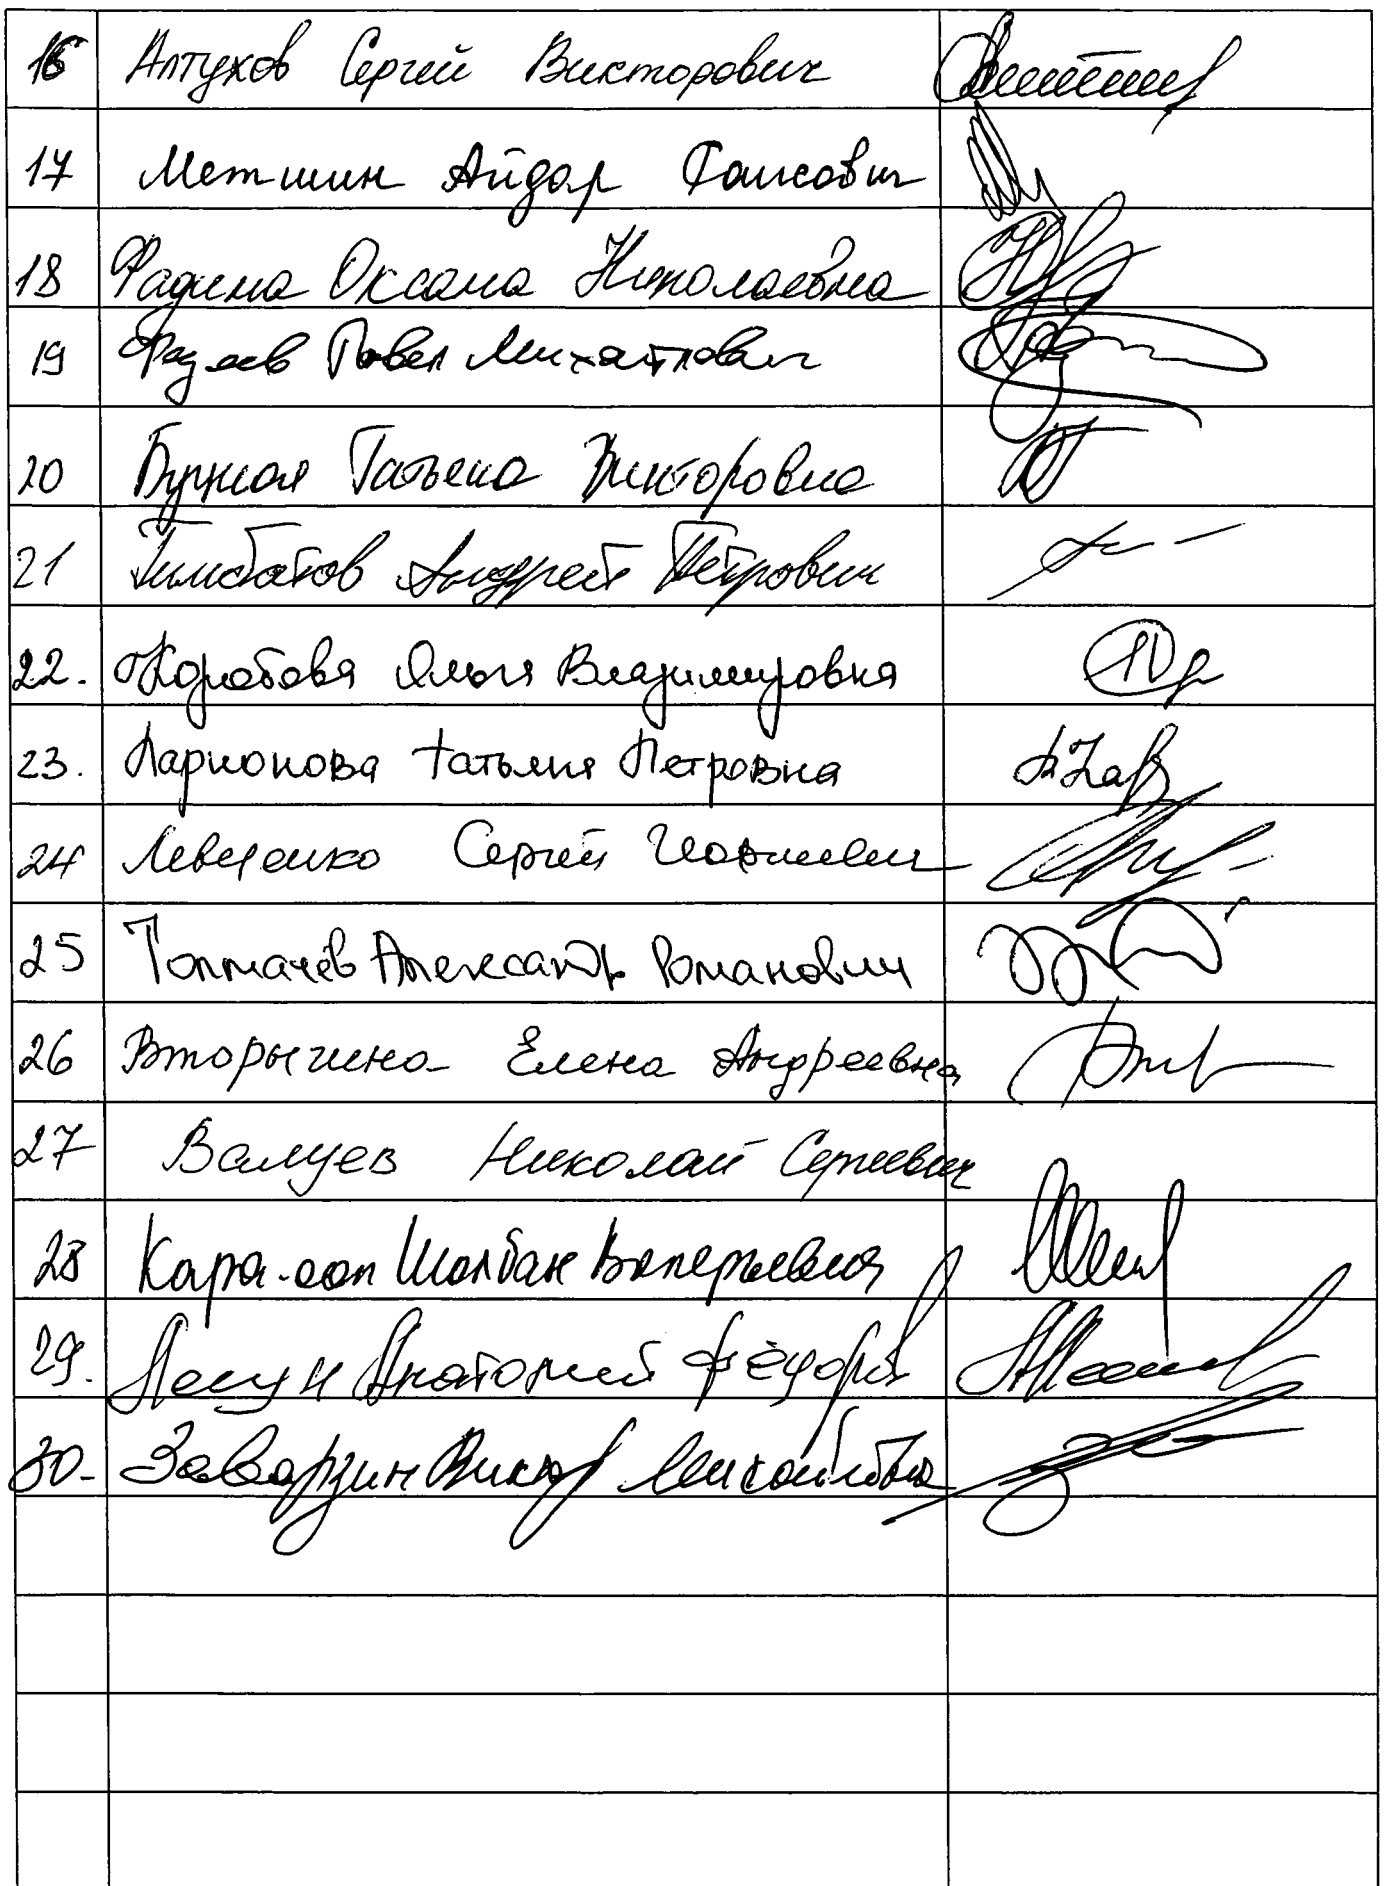 16 Алтухов Сергей Викторович
17 Метшин Айдар Раисович
18 Фадина Оксана Николаевна
19 Федяев Павел Михайлович
20 Буцкая Татьяна Викторовна
21 Андрей Петрович
22. Коробова Ольга Владимировна
23. Ларионова Татьяна Петровна
24 Левченко Сергей
25 Толмачёв Александр Романович
26 Вторыгина Елена Андреевна
27 Валуев Николай Сергеевич
28 Кара-оол Шолбан Валерьевич
29. Лесун Анатолий Фёдоров
30. Заварзин Виктор Михайлович